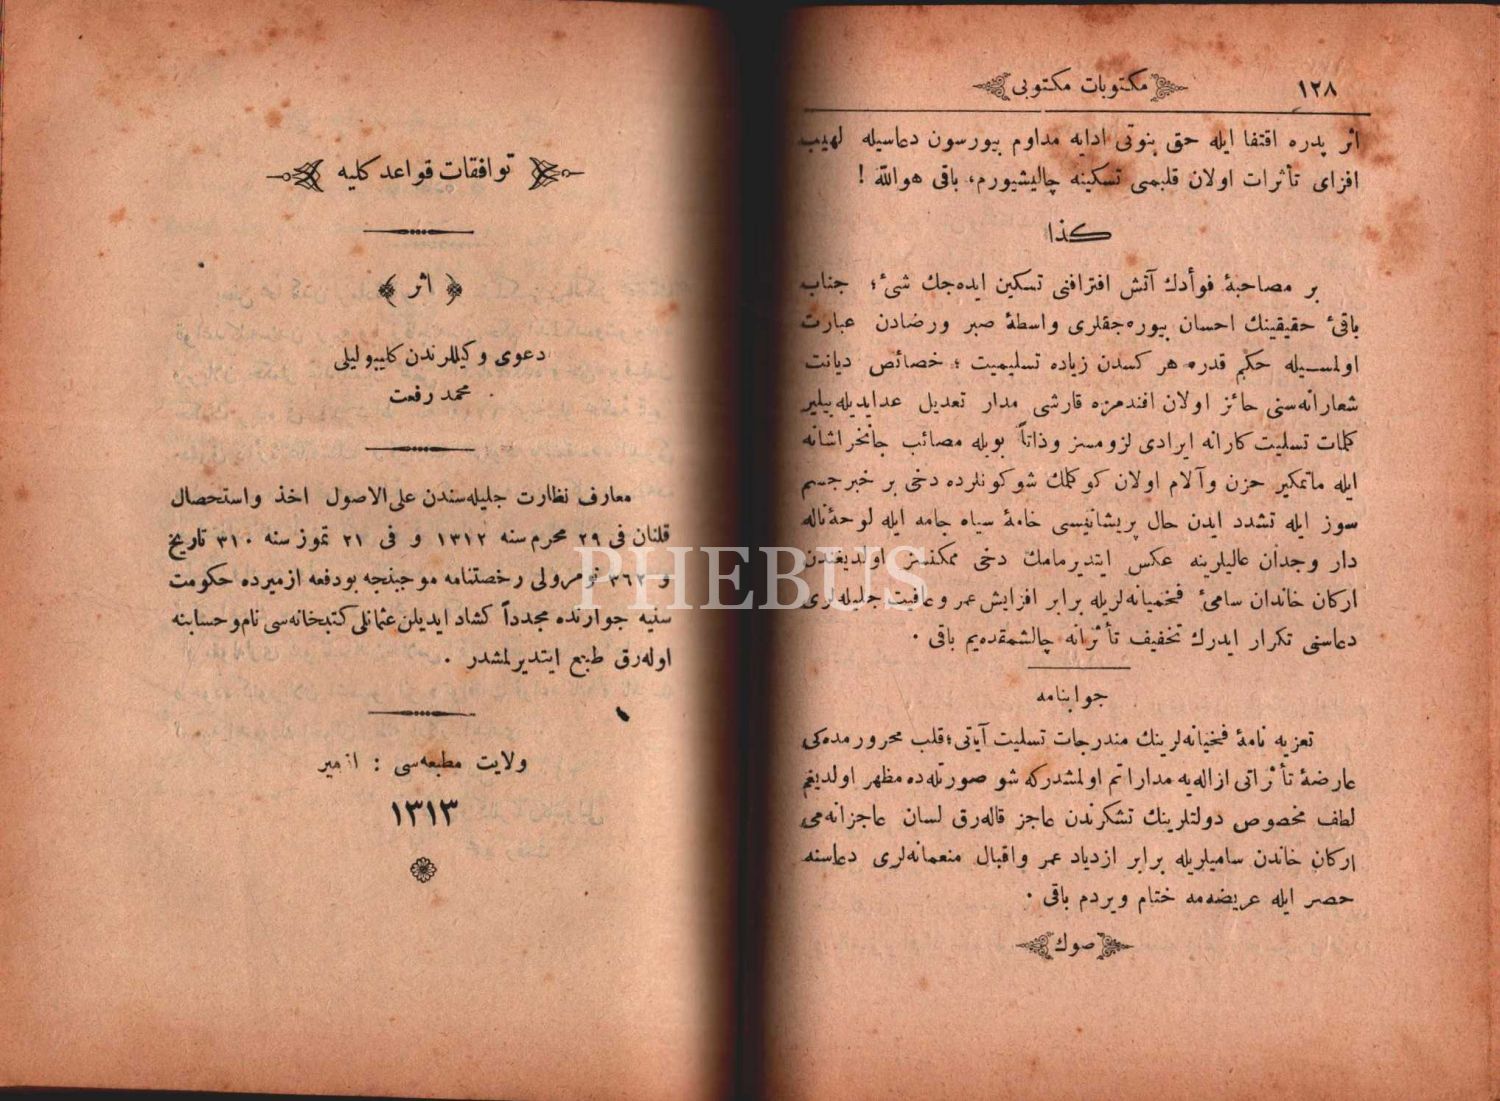 ١٢٨
مكتوبات مكتوبى
اثر پدره اقتفا ايله حق بنوتى ادايه مداوم بيورسون دعاسيله لهيب
افزاى تأثرات اولان قلبمى تسكينه چاليشيورم، باقى هوالله !
كذا
بر مصاحبهٔ فوأدك آتش افتراقنى تسكين ايده‌جك شىء ؛ جناب
باقىٔ حقيقينك احسان بيوره‌جقلرى واسطهٔ صبر ورضادن عبارت
اولمسيله حكم قدره هر كسدن زياده تسليميت ؛ خصائص ديانت
شعارانه‌سنى حائز اولان افندمزه قارشى مدار تعديل عدايديله‌بيلير
كلمات تسليت كارانه ايرادى لزومسز وذاتاً بويله مصائب جانخراشانه
ايله ماتمكير حزن وآلام اولان كوكلك شوكونلرده دخى بر خبرجسم
سوز ايله تشدد ايدن حال پريشانيسى خامهٔ سياه جامه ايله لوحهٔ ناله
دار وجدان عاليلرينه عكس ايتديرمامك دخى ممكنسز اولديغندن
اركان خاندان سامىٔ فخميانه‌لريله برابر افزايش عمر و عافيت جليله‌لرى
دعاسنى تكرار ايدرك تخفيف تأثرانه چالشمقده‌يم باقى .
جوابنامه
تعزيه نامهٔ فخيمانه‌لرينك مندرجات تسليت آياتى ؛ قلب محرورمده‌كى
عارضهٔ تأثراتى ازاله‌يه مداراتم اولمشدركه شو صورتله‌ده مظهر اولديغم
لطف مخصوص دولتلرينك تشكرندن عاجز قاله‌رق لسان عاجزانه‌مى
اركان خاندن ساميلريله برابر ازدياد عمر واقبال منعمانه‌لرى دعاسنه
حصر ايله عريضه‌مه ختام ويردم باقى .
صوك
توافقات قواعد كليه
اثر
دعوى وكيللرندن كليبوليلى
محمد رفعت
معارف نظارت جليله‌سندن على‌الاصول اخذ واستحصال
قلنان فى ٢٩ محرم سنه ١٣١٢ و فى ٢١ تموز سنه ٣١٠ تاريخ
و ٣٦٢ نومرولى رخصتنامه موجبنجه بودفعه ازميرده حكومت
سنيه جوارنده مجدداً كشاد ايديلن عثمانلى كتبخانه‌سى نام وحسابنه
اوله‌رق طبع ايتديرلمشدر .
ولايت مطبعه‌سى : ازمير
١٣١٣
PHEBUS